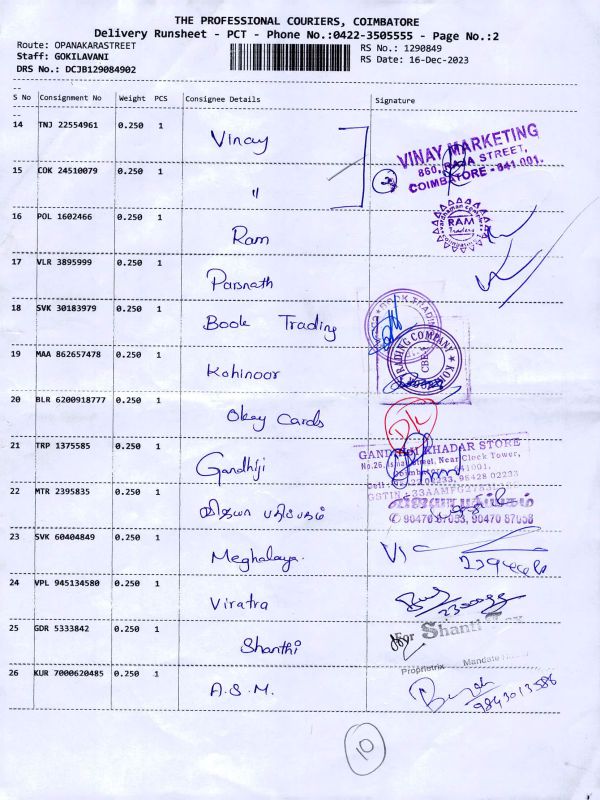 THE PROFESSIONAL COURIERS, COIMBATORE
Delivery Runsheet - PCT - Phone No.:0422-3505555 - Page No.:2
Route: OPANAKARASTREET
RS No.: 1290849
Staff: GOKILAVANI
RS Date: 16-Dec-2023
DRS No.: DCJB129084902
S No Consignment No Weight PCS Consignee Details Signature
14 TNJ 22554961 0.250 1 Vinay
VINAY MARKETING
860, RAJA STREET,
COIMBATORE - 641 001.
15 COK 24510079 0.250 1 "
16 POL 1602466 0.250 1 Ram
RAM
17 VLR 3895999 0.250 1 Parsnath
18 SVK 30183979 0.250 1 Book Trading
19 MAA 862657478 0.250 1 Kohinoor
TRADING COMPANY
20 BLR 6200918777 0.250 1 Okay Cards
21 TRP 1375585 0.250 1 Gandhiji
GANDHIJI KHADAR STORE
Near Clock Tower,
96428 02233
22 MTR 2395835 0.250 1
90470 87058
23 SVK 60404849 0.250 1 Meghalaya.
24 VPL 945134580 0.250 1 Viratra
25 GDR 5333842 0.250 1 Shanthi
For Shanti Tex
Proprietrix
26 KUR 7000620485 0.250 1 A.S.M.
9843013586
10